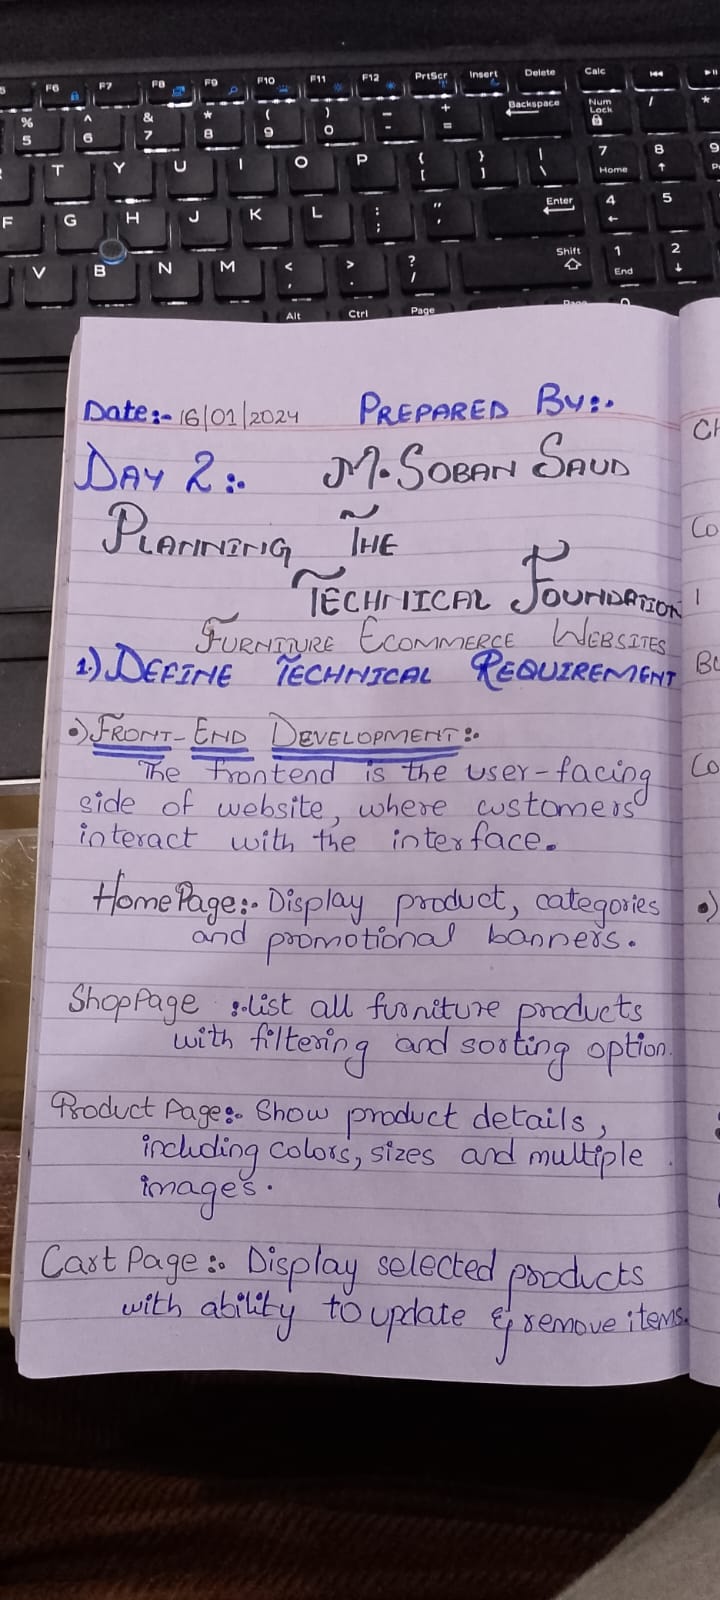 F6 F7 F8 F9 F10 F11 F12 PrtScr Insert Delete Calc
% ^ & * ( ) - + Backspace Num Lock / *
5 6 7 8 9 0 - =
T Y U I O P { } | 7 8 9
[ ] \ Home
F G H J K L : " Enter 4 5
; '
V B N M < > ? Shift 1 2
, . / End
Alt Ctrl Page
Date:- 16/01/2024 PREPARED BY:-
DAY 2:- M. SOBAN SAUD
PLANNING THE
TECHNICAL FOUNDATION
FURNITURE ECOMMERCE WEBSITES
1.) DEFINE TECHNICAL REQUIREMENT
•) FRONT-END DEVELOPMENT:-
The frontend is the user-facing
side of website, where customers
interact with the interface.
Home Page:- Display product, categories
and promotional banners.
Shop Page :- List all furniture products
with filtering and sorting option.
Product Page:- Show product details,
including colors, sizes and multiple
images.
Cart Page:- Display selected products
with ability to update & remove items.